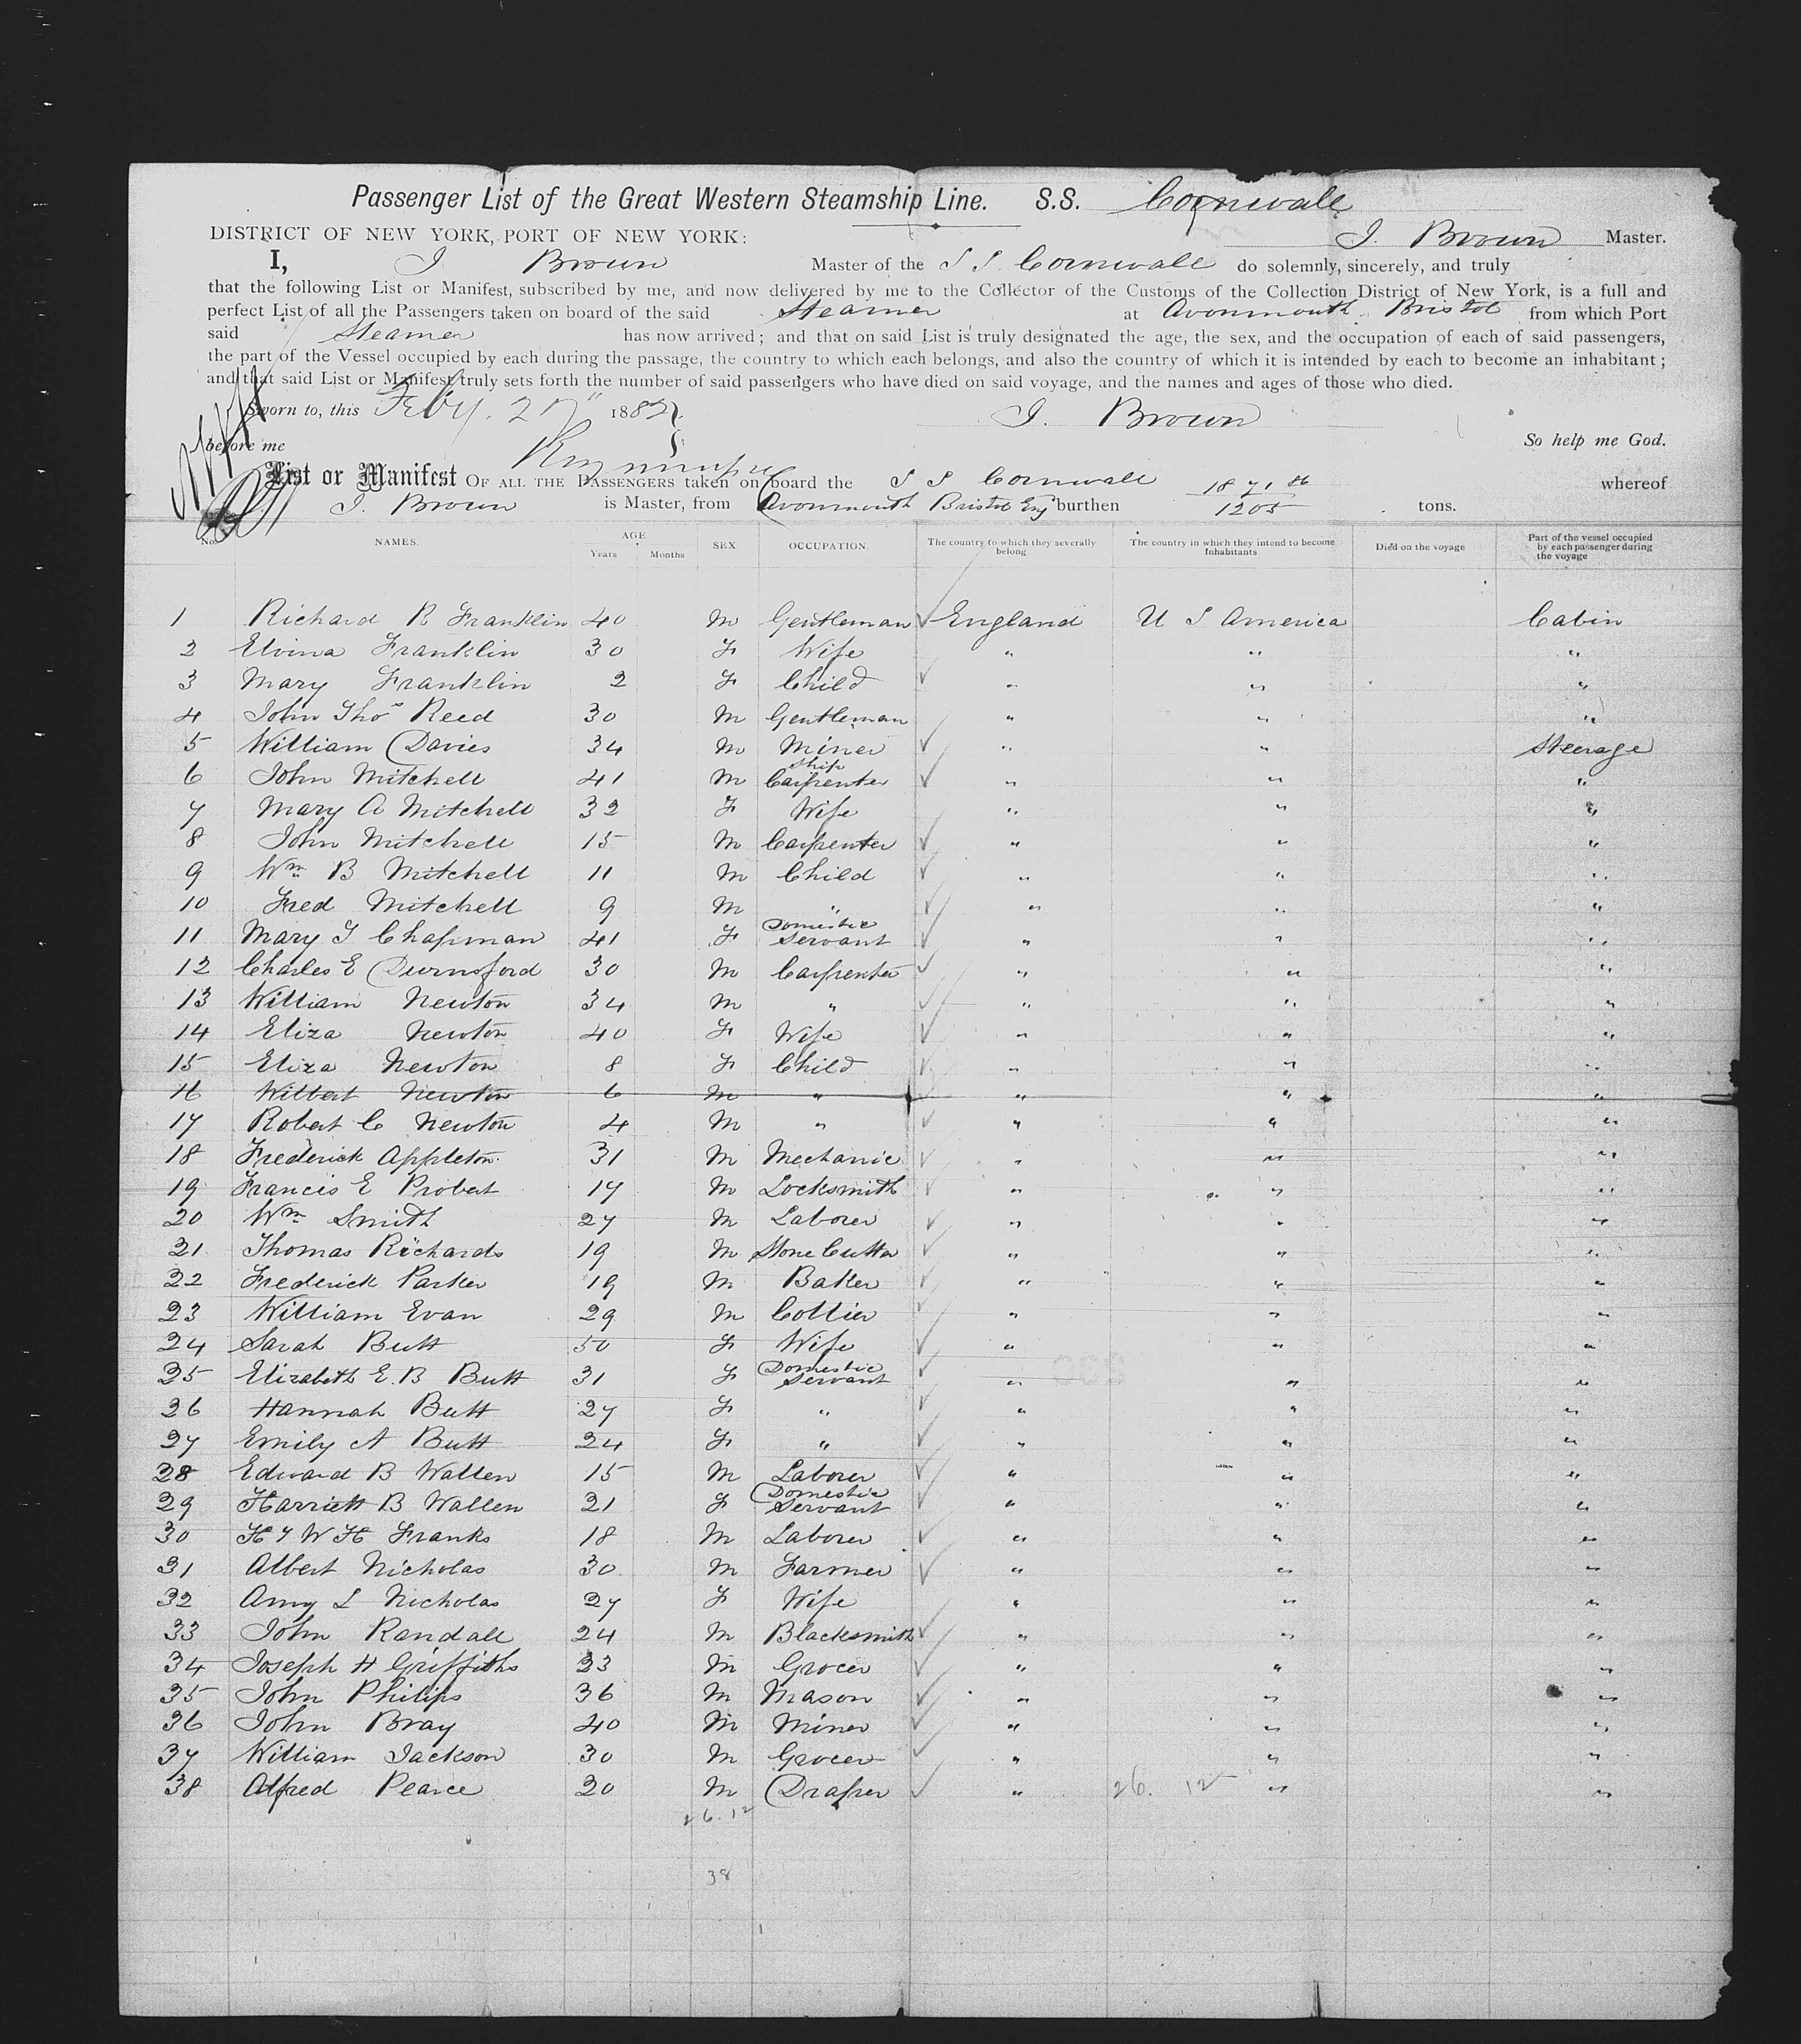 Passenger List of the Great Western Steamship Line. S.S. Cornwall
DISTRICT OF NEW YORK, PORT OF NEW YORK: J. Brown Master.
I, J Brown Master of the S S Cornwall do solemnly, sincerely, and truly
that the following List or Manifest, subscribed by me, and now delivered by me to the Collector of the Customs of the Collection District of New York, is a full and
perfect List of all the Passengers taken on board of the said Steamer at Avonmouth Bristol from which Port
said Steamer has now arrived; and that on said List is truly designated the age, the sex, and the occupation of each of said passengers,
the part of the Vessel occupied by each during the passage, the country to which each belongs, and also the country of which it is intended by each to become an inhabitant;
and that said List or Manifest truly sets forth the number of said passengers who have died on said voyage, and the names and ages of those who died.
Sworn to, this Feby. 27" 1882 J. Brown
before me So help me God.
List or Manifest OF ALL THE PASSENGERS taken on board the S S Cornwall 1871 86 whereof
J. Brown is Master, from Avonmouth Bristol Eng burthen 1205 tons.
No. NAMES. AGE Years Months SEX OCCUPATION. The country to which they severally belong The country in which they intend to become Inhabitants Died on the voyage Part of the vessel occupied by each passenger during the voyage
1 Richard R Franklin 40 M Gentleman England U S America Cabin
2 Elvina Franklin 30 F Wife " " "
3 Mary Franklin 2 F Child " " "
4 John Thos Reed 30 M Gentleman " " "
5 William Davies 34 M Miner " " Steerage
6 John Mitchell 41 M Ship Carpenter " " "
7 Mary A Mitchell 32 F Wife " " "
8 John Mitchell 15 M Carpenter " " "
9 Wm B Mitchell 11 M Child " " "
10 Fred Mitchell 9 M " " " "
11 Mary J Chapman 41 F Domestic Servant " " "
12 Charles E Durnsford 30 M Carpenter " " "
13 William Newton 34 M " " " "
14 Eliza Newton 40 F Wife " " "
15 Eliza Newton 8 F Child " " "
16 Wilbert Newton 6 M " " " "
17 Robert C Newton 4 M " " " "
18 Frederick Appleton 31 M Mechanic " " "
19 Francis E Probert 17 M Locksmith " " "
20 Wm Smith 27 M Laborer " " "
21 Thomas Richards 19 M Stone Cutter " " "
22 Frederick Parker 19 M Baker " " "
23 William Evan 29 M Collier " " "
24 Sarah Butt 50 F Wife " " "
25 Elizabeth E. B Butt 31 F Domestic Servant " " "
26 Hannah Butt 27 F " " " "
27 Emily A Butt 24 F " " " "
28 Edward B Wallen 15 M Laborer " " "
29 Harriett B Wallen 21 F Domestic Servant " " "
30 H J W H Franks 18 M Laborer " " "
31 Albert Nicholas 30 M Farmer " " "
32 Amy L Nicholas 27 F Wife " " "
33 John Randall 24 M Blacksmith " " "
34 Joseph H Griffiths 23 M Grocer " " "
35 John Philips 36 M Mason " " "
36 John Bray 40 M Miner " " "
37 William Jackson 30 M Grocer " " "
38 Alfred Pearce 20 M Draper " 26. 12 " "
26.12
38